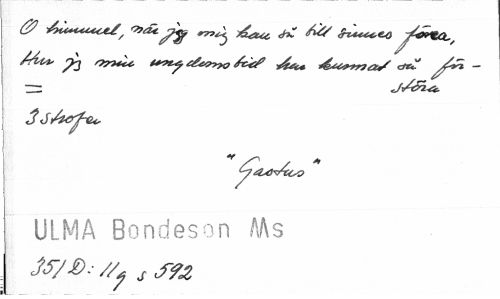 O himmel, när jag mig kan så till sinnes föra,
Hur jag min ungdomstid har kunnat så för-
störa
=
3 strofer
"Gaotus"
ULMA Bondeson Ms
351 D: 11 q s 592